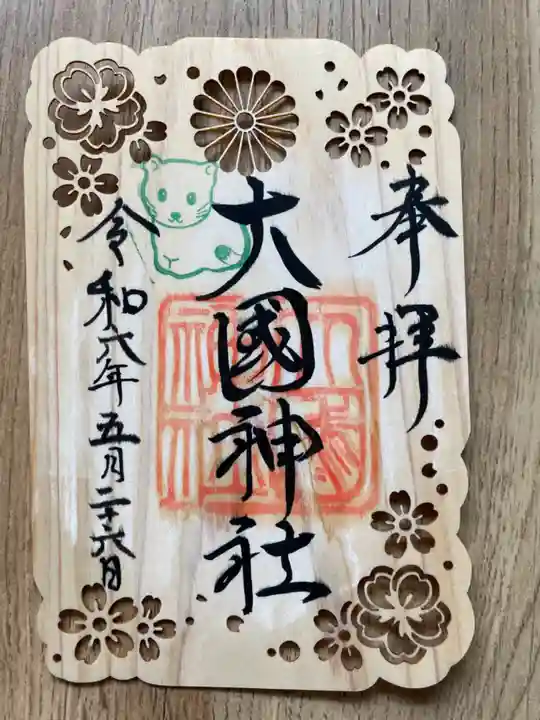 奉拝
大國神社
大國神社
令和六年五月二十六日